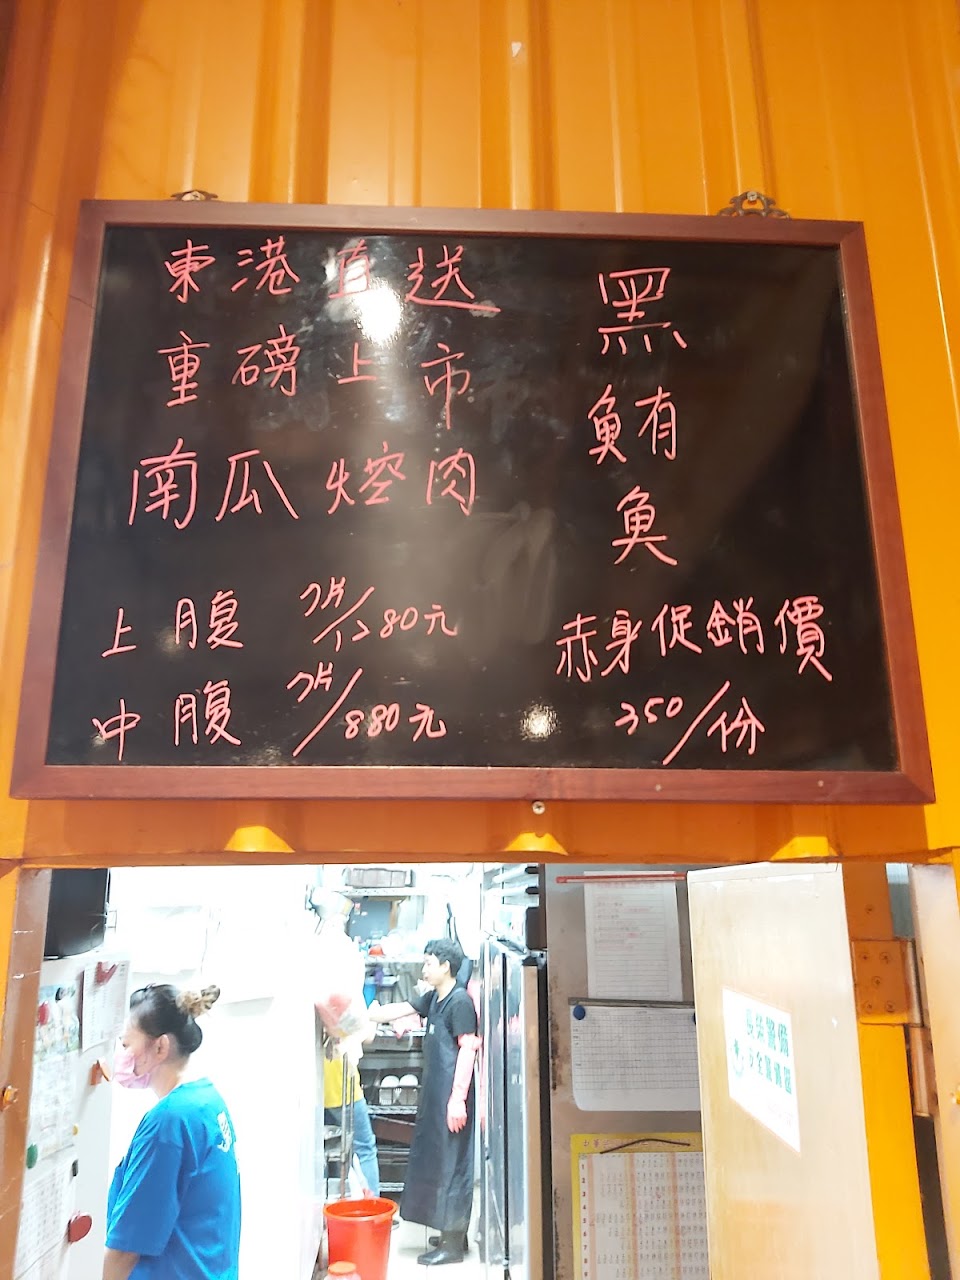 東港直送
重磅上市
南瓜焢肉
上腹 7片/1280元
中腹 7片/880元
黑
鮪
魚
赤身促銷價
350/份